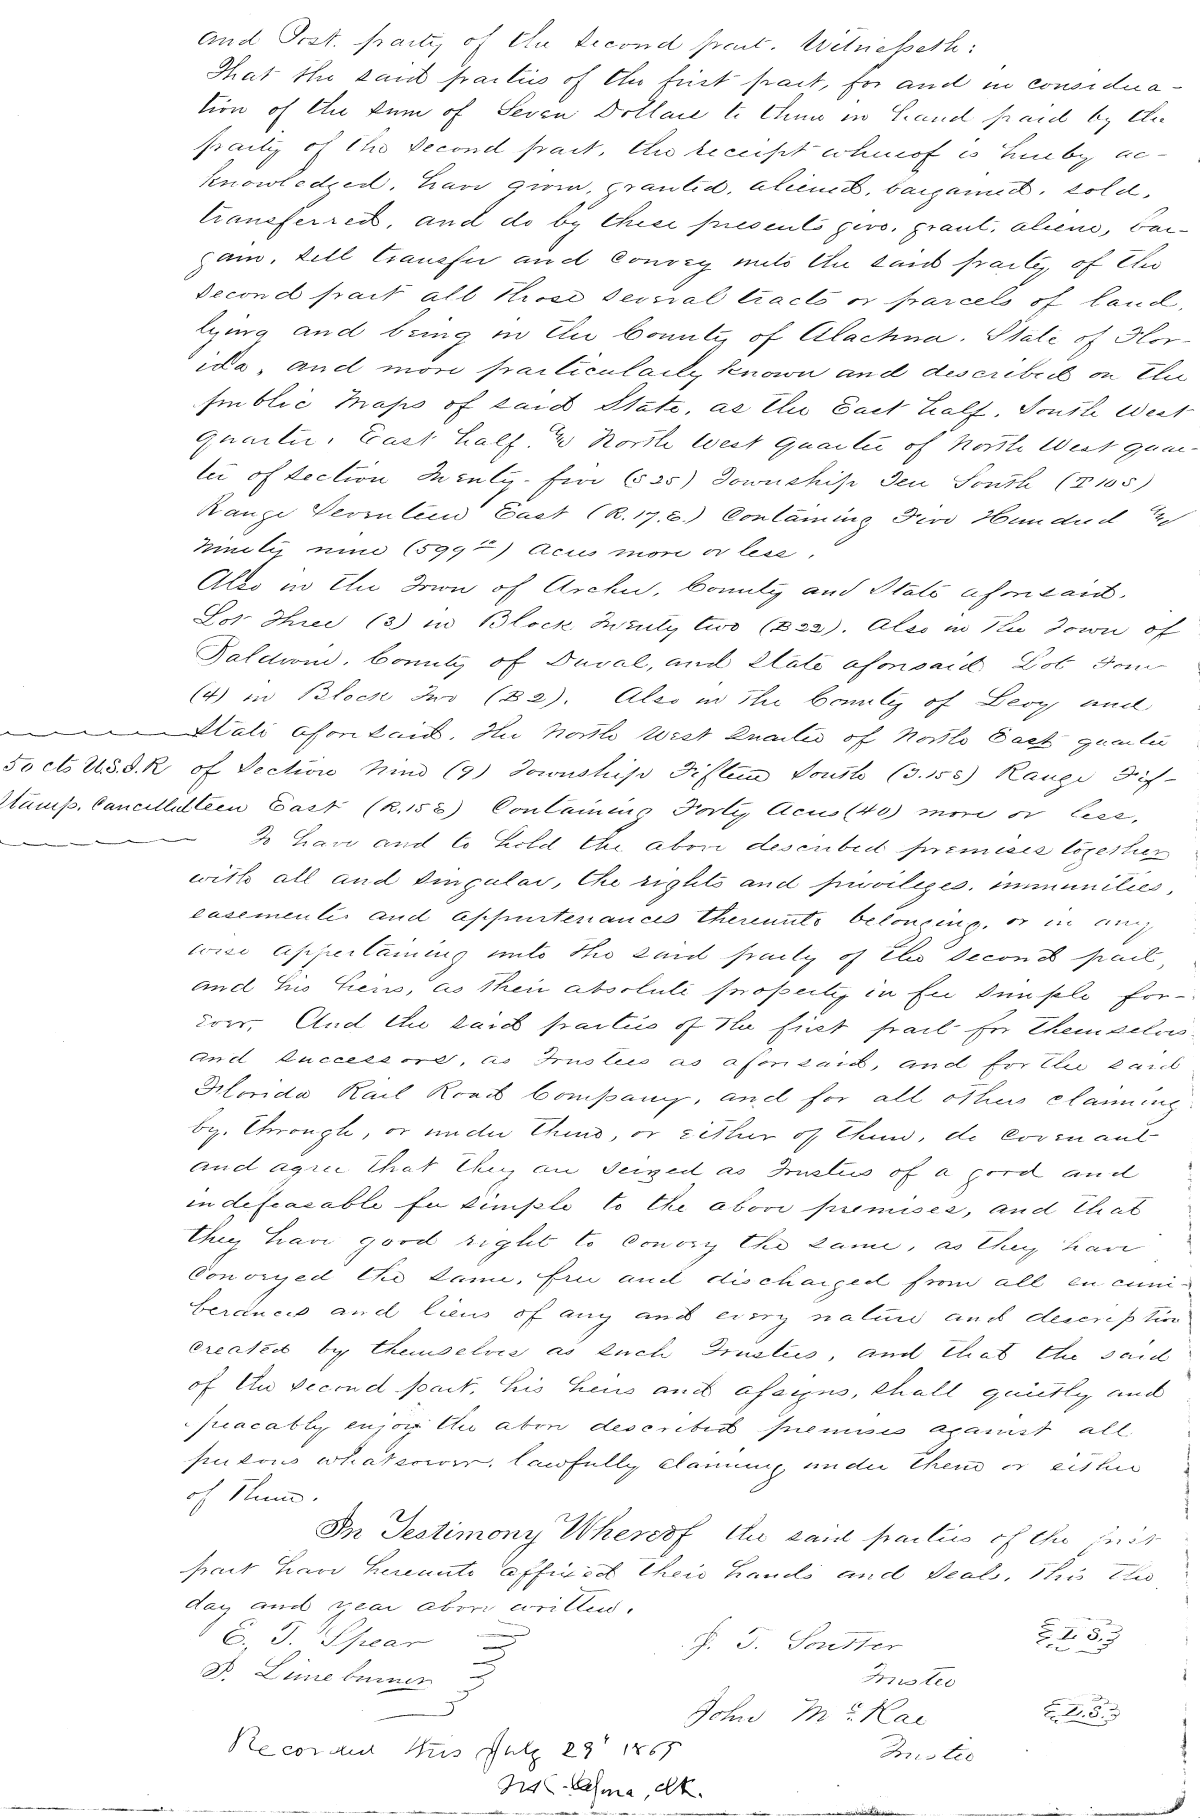 and Post. party of the second part. Witnesseth:
That the said parties of the first part, for and in considera-
tion of the sum of Seven Dollars to them in hand paid by the
party of the second part, the receipt whereof is hereby ac-
knowledged, have given, granted, aliened, bargained, sold,
transferred, and do by these presents give, grant, alien, bar-
gain, sell transfer and convey unto the said party of the
second part all those several tracts or parcels of land,
lying and being in the County of Alachua. State of Flor-
ida, and more particularly known and described on the
public Maps of said State, as the East half, South West
quarter, East half, & North West Quarter of North West quar-
ter of section Twenty-five (S 25) Township Ten South (T 10 S)
Range Seventeen East (R. 17. E.) Containing Five Hundred &
Ninety nine (599) acres more or less.
Also in the Town of Archer, County and State aforesaid.
Lot Three (3) in Block Twenty two (B 22). Also in the Town of
Baldwin, County of Duval, and State aforesaid Lot Four
(4) in Block Two (B 2). Also in the County of Levy and
State aforesaid. The North West Quarter of North East quarter
50 cts U.S.I.R of Section Nine (9) Township Fifteen South (T. 15 S) Range Fif-
Stamp. Cancelled teen East (R. 15 E) Containing Forty Acres (40) more or less,
To have and to hold the above described premises together
with all and singular, the rights and privileges, immunities,
easements and appurtenances thereunto belonging, or in any
wise appertaining unto the said party of the second part,
and his heirs, as their absolute property in fee simple for-
ever, And the said parties of the first part for themselves
and successors, as Trustees as aforesaid, and for the said
Florida Rail Road Company, and for all others claiming
by, through, or under them, or either of them, do covenant
and agree that they are seized as Trustees of a good and
indefeasable fee simple to the above premises, and that
they have good right to convey the same, as they have
conveyed the same, free and discharged from all encum-
berances and liens of any and every nature and description
created by themselves as such Trustees, and that the said
of the second part, his heirs and assigns, shall quietly and
peacably enjoy the above described premises against all
persons whatsoever, lawfully claiming under them or either
of them.
In Testimony Whereof the said parties of the first
part have hereunto affixed their hands and seals, this the
day and year above written.
E. T. Spear J. T. Soutter L.S.
F. Limeburner Trustee
John McRae L.S.
Recorded this July 29' 1867 Trustee